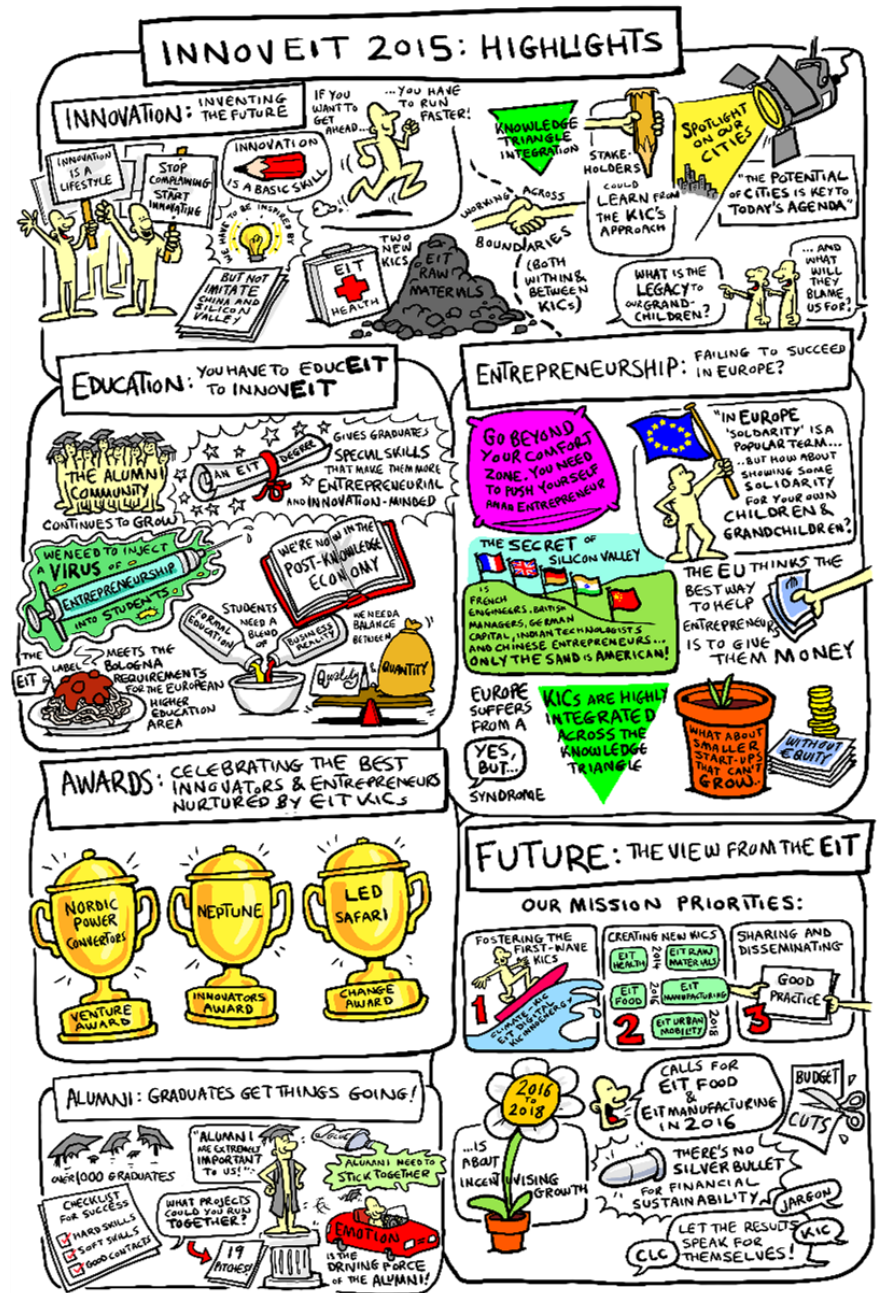 INNOVEIT 2015: HIGHLIGHTS
INNOVATION: INVENTING
THE FUTURE
INNOVATION
IS A
LIFESTYLE
STOP
COMPLAINING
START
INNOVATING
INNOVATION
IS A BASIC SKILL
IF YOU
WANT TO
GET
AHEAD...
...YOU HAVE
TO RUN
FASTER!
WE HAVE TO BE INSPIRED BY
BUT NOT
IMITATE
CHINA AND
SILICON
VALLEY
TWO
NEW
KICS
EIT
HEALTH
EIT
RAW
MATERIALS
KNOWLEDGE
TRIANGLE
INTEGRATION
WORKING ACROSS
BOUNDARIES
(BOTH
WITHIN &
BETWEEN
KICs)
STAKE-
HOLDERS
COULD
LEARN FROM
THE KIC'S
APPROACH
SPOTLIGHT
ON OUR
CITIES
"THE POTENTIAL
OF CITIES IS KEY TO
TODAY'S AGENDA"
WHAT IS THE
LEGACY TO
OUR GRAND-
CHILDREN?
...AND
WHAT
WILL
THEY
BLAME
US FOR?
EDUCATION: YOU HAVE TO EDUCEIT
TO INNOVEIT
THE ALUMNI
COMMUNITY
CONTINUES TO GROW
AN EIT DEGREE
GIVES GRADUATES
SPECIAL SKILLS
THAT MAKE THEM MORE
ENTREPRENEURIAL
AND INNOVATION-MINDED
WE NEED TO INJECT
A VIRUS OF
ENTREPRENEURSHIP
INTO STUDENTS
WE'RE NOW IN THE
POST-KNOWLEDGE
ECONOMY
THE
EIT
LABEL
MEETS THE
BOLOGNA
REQUIREMENTS
FOR THE EUROPEAN
HIGHER
EDUCATION
AREA
STUDENTS
NEED A
BLEND
OF
FORMAL
EDUCATION
BUSINESS
REALITY
WE NEED A
BALANCE
BETWEEN
Quality
&
QUANTITY
ENTREPRENEURSHIP: FAILING TO SUCCEED
IN EUROPE?
GO BEYOND
YOUR COMFORT
ZONE. YOU NEED
TO PUSH YOURSELF
AS AN ENTREPRENEUR
"IN EUROPE
'SOLDARITY' IS A
POPULAR TERM...
..BUT HOW ABOUT
SHOWING SOME
SOLIDARITY
FOR YOUR OWN
CHILDREN &
GRANDCHILDREN?
THE SECRET OF
SILICON VALLEY
IS
FRENCH
ENGINEERS, BRITISH
MANAGERS, GERMAN
CAPITAL, INDIAN TECHNOLOGISTS
AND CHINESE ENTREPRENEURS...
ONLY THE SAND IS AMERICAN!
THE EU THINKS THE
BEST WAY
TO HELP
ENTREPRENEURS
IS TO GIVE
THEM MONEY
EUROPE
SUFFERS
FROM A
YES,
BUT...
SYNDROME
KICS ARE HIGHLY
INTEGRATED
ACROSS THE
KNOWLEDGE
TRIANGLE
WHAT ABOUT
SMALLER
START-UPS
THAT CAN'T
GROW..
WITHOUT
EQUITY
AWARDS: CELEBRATING THE BEST
INNOVATORS & ENTREPRENEURS
NURTURED BY EIT KICs
NORDIC
POWER
CONVERTORS
VENTURE
AWARD
NEPTUNE
INNOVATORS
AWARD
LED
SAFARI
CHANGE
AWARD
FUTURE: THE VIEW FROM THE EIT
OUR MISSION PRIORITIES:
FOSTERING THE
FIRST-WAVE
KICS
1
CLIMATE-KIC
EIT DIGITAL
KIC INNOENERGY
CREATING NEW KICS
EIT
HEALTH
2014
EIT RAW
MATERIALS
EIT
FOOD
2016
EIT
MANUFACTURING
2
EIT URBAN
MOBILITY
2018
SHARING AND
DISSEMINATING
GOOD
PRACTICE
3
2016
TO
2018
...IS
ABOUT
INCENTIVISING
GROWTH
CALLS FOR
EIT FOOD
&
EIT MANUFACTURING
IN 2016
BUDGET
CUTS
THERE'S NO
SILVER BULLET
FOR FINANCIAL
SUSTAINABILITY
JARGON
KIC
CLC
LET THE RESULTS
SPEAK FOR
THEMSELVES!
ALUMNI: GRADUATES GET THINGS GOING!
OVER 1000 GRADUATES
CHECKLIST
FOR SUCCESS
HARD SKILLS
SOFT SKILLS
GOOD CONTACTS
"ALUMNI
ARE EXTREMELY
IMPORTANT
TO US!"
WHAT PROJECTS
COULD YOU RUN
TOGETHER?
19
PITCHES!
GLUE
ALUMNI NEED TO
STICK TOGETHER
EMOTION
IS THE
DRIVING FORCE
OF THE ALUMNI!